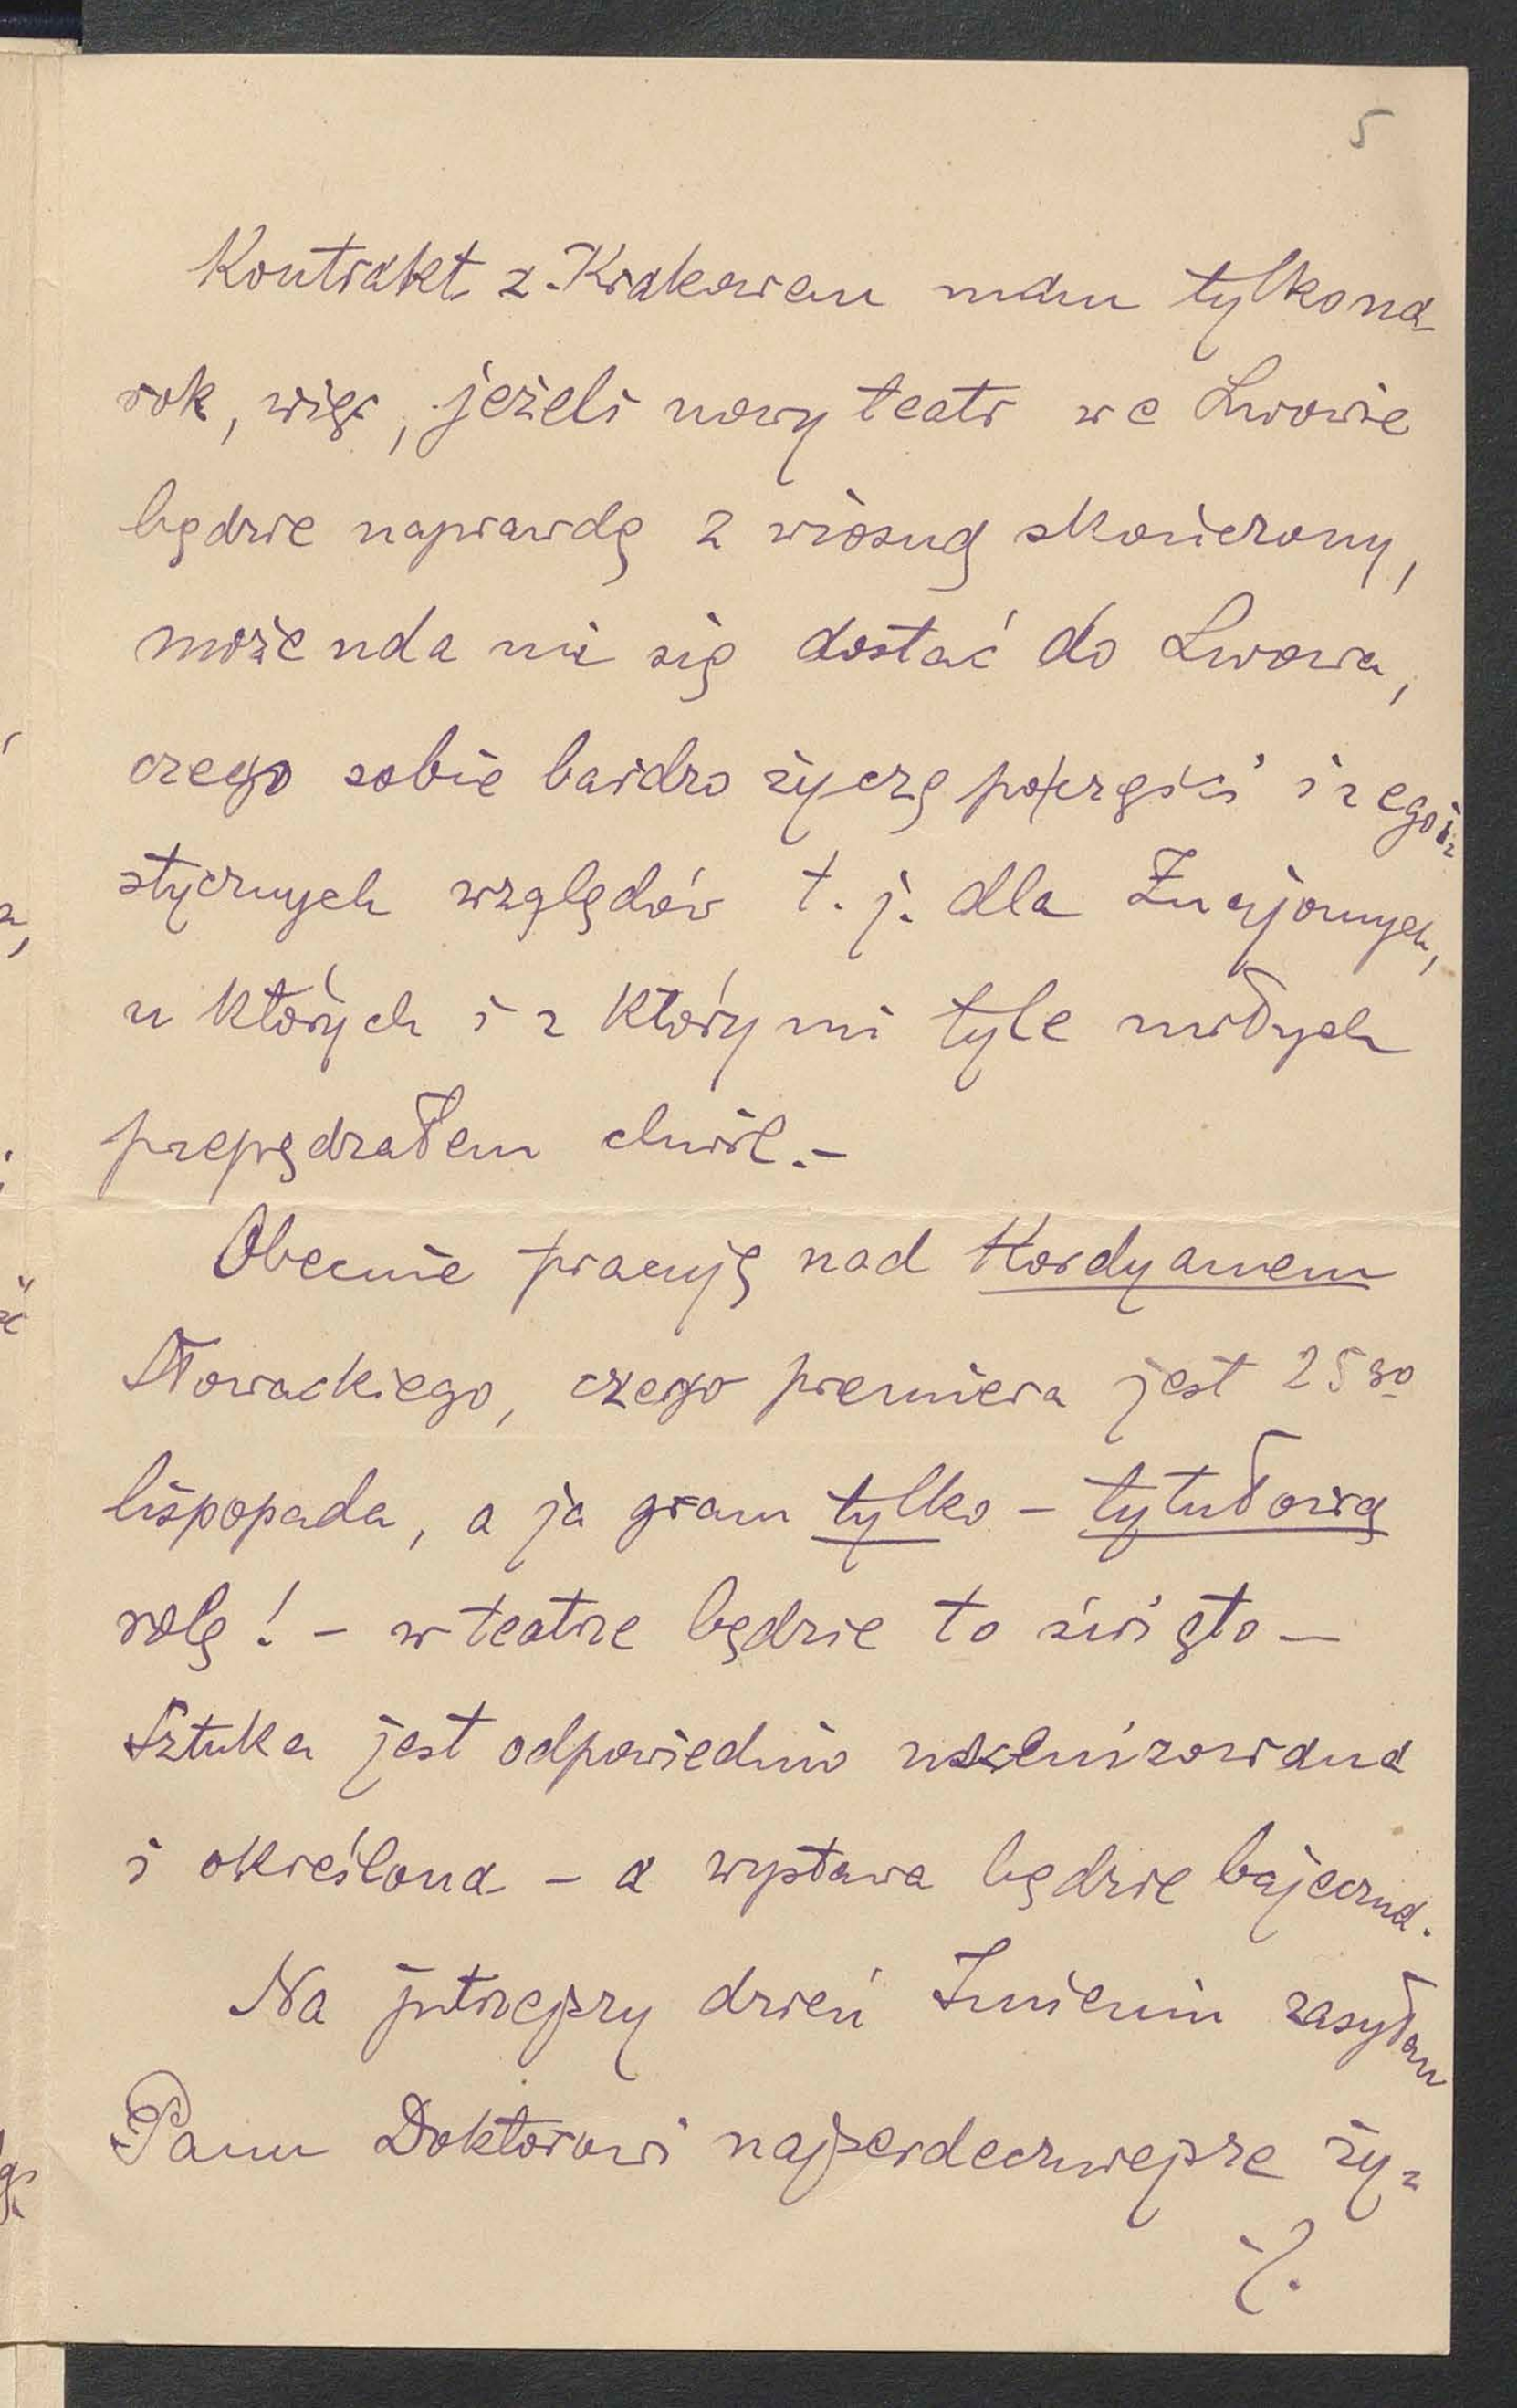 5
Kontrakt z Krakowem mam tylko na
rok, więc, jeżeli nowy teatr we Lwowie
będzie naprawdę z wiosną skończony,
może uda mi się dostać do Lwowa,
czego sobie bardzo życzę poczęści i z egoi-
stycznych względów t. j. dla Znajomych,
u których i z którymi tyle miłych
przepędzałem chwil.–
Obecnie pracuję nad Kordyanem
Słowackiego, czego premiera jest 25go
lispopada, a ja gram tylko – tytułową
rolę! – w teatrze będzie to święto –
Sztuka jest odpowiednio uscenizowana
i określona – a wystawa będzie bajeczna.
Na jutrzejszy dzień Imienin zasyłam
Panu Doktorowi najserdeczniejsze ży-
·/.